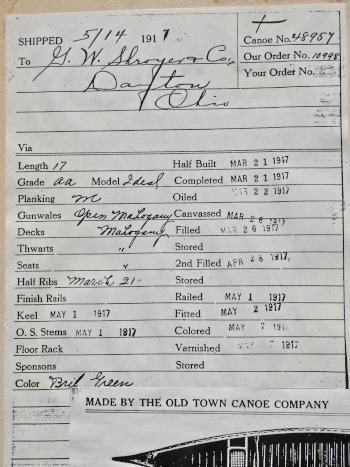 SHIPPED 5/14 1917
Canoe No. 48957
To G. W. Shroyer & Co,
Our Order No. 10998
Dayton
Your Order No.
Ohio
Via
Length 17 Half Built MAR 21 1917
Grade aa Model Ideal Completed MAR 21 1917
Planking m Oiled MAR 22 1917
Gunwales Open Mahogany Canvassed MAR 26 1917
Decks Mahogany Filled MAR 26 1917
Thwarts " Stored
Seats " 2nd Filled APR 28 1917
Half Ribs March 21- Stored
Finish Rails Railed MAY 1 1917
Keel MAY 1 1917 Fitted MAY 2 1917
O. S. Stems MAY 1 1917 Colored MAY 7 1917
Floor Rack Varnished MAY 1917
Sponsons Stored
Color Bril Green
MADE BY THE OLD TOWN CANOE COMPANY